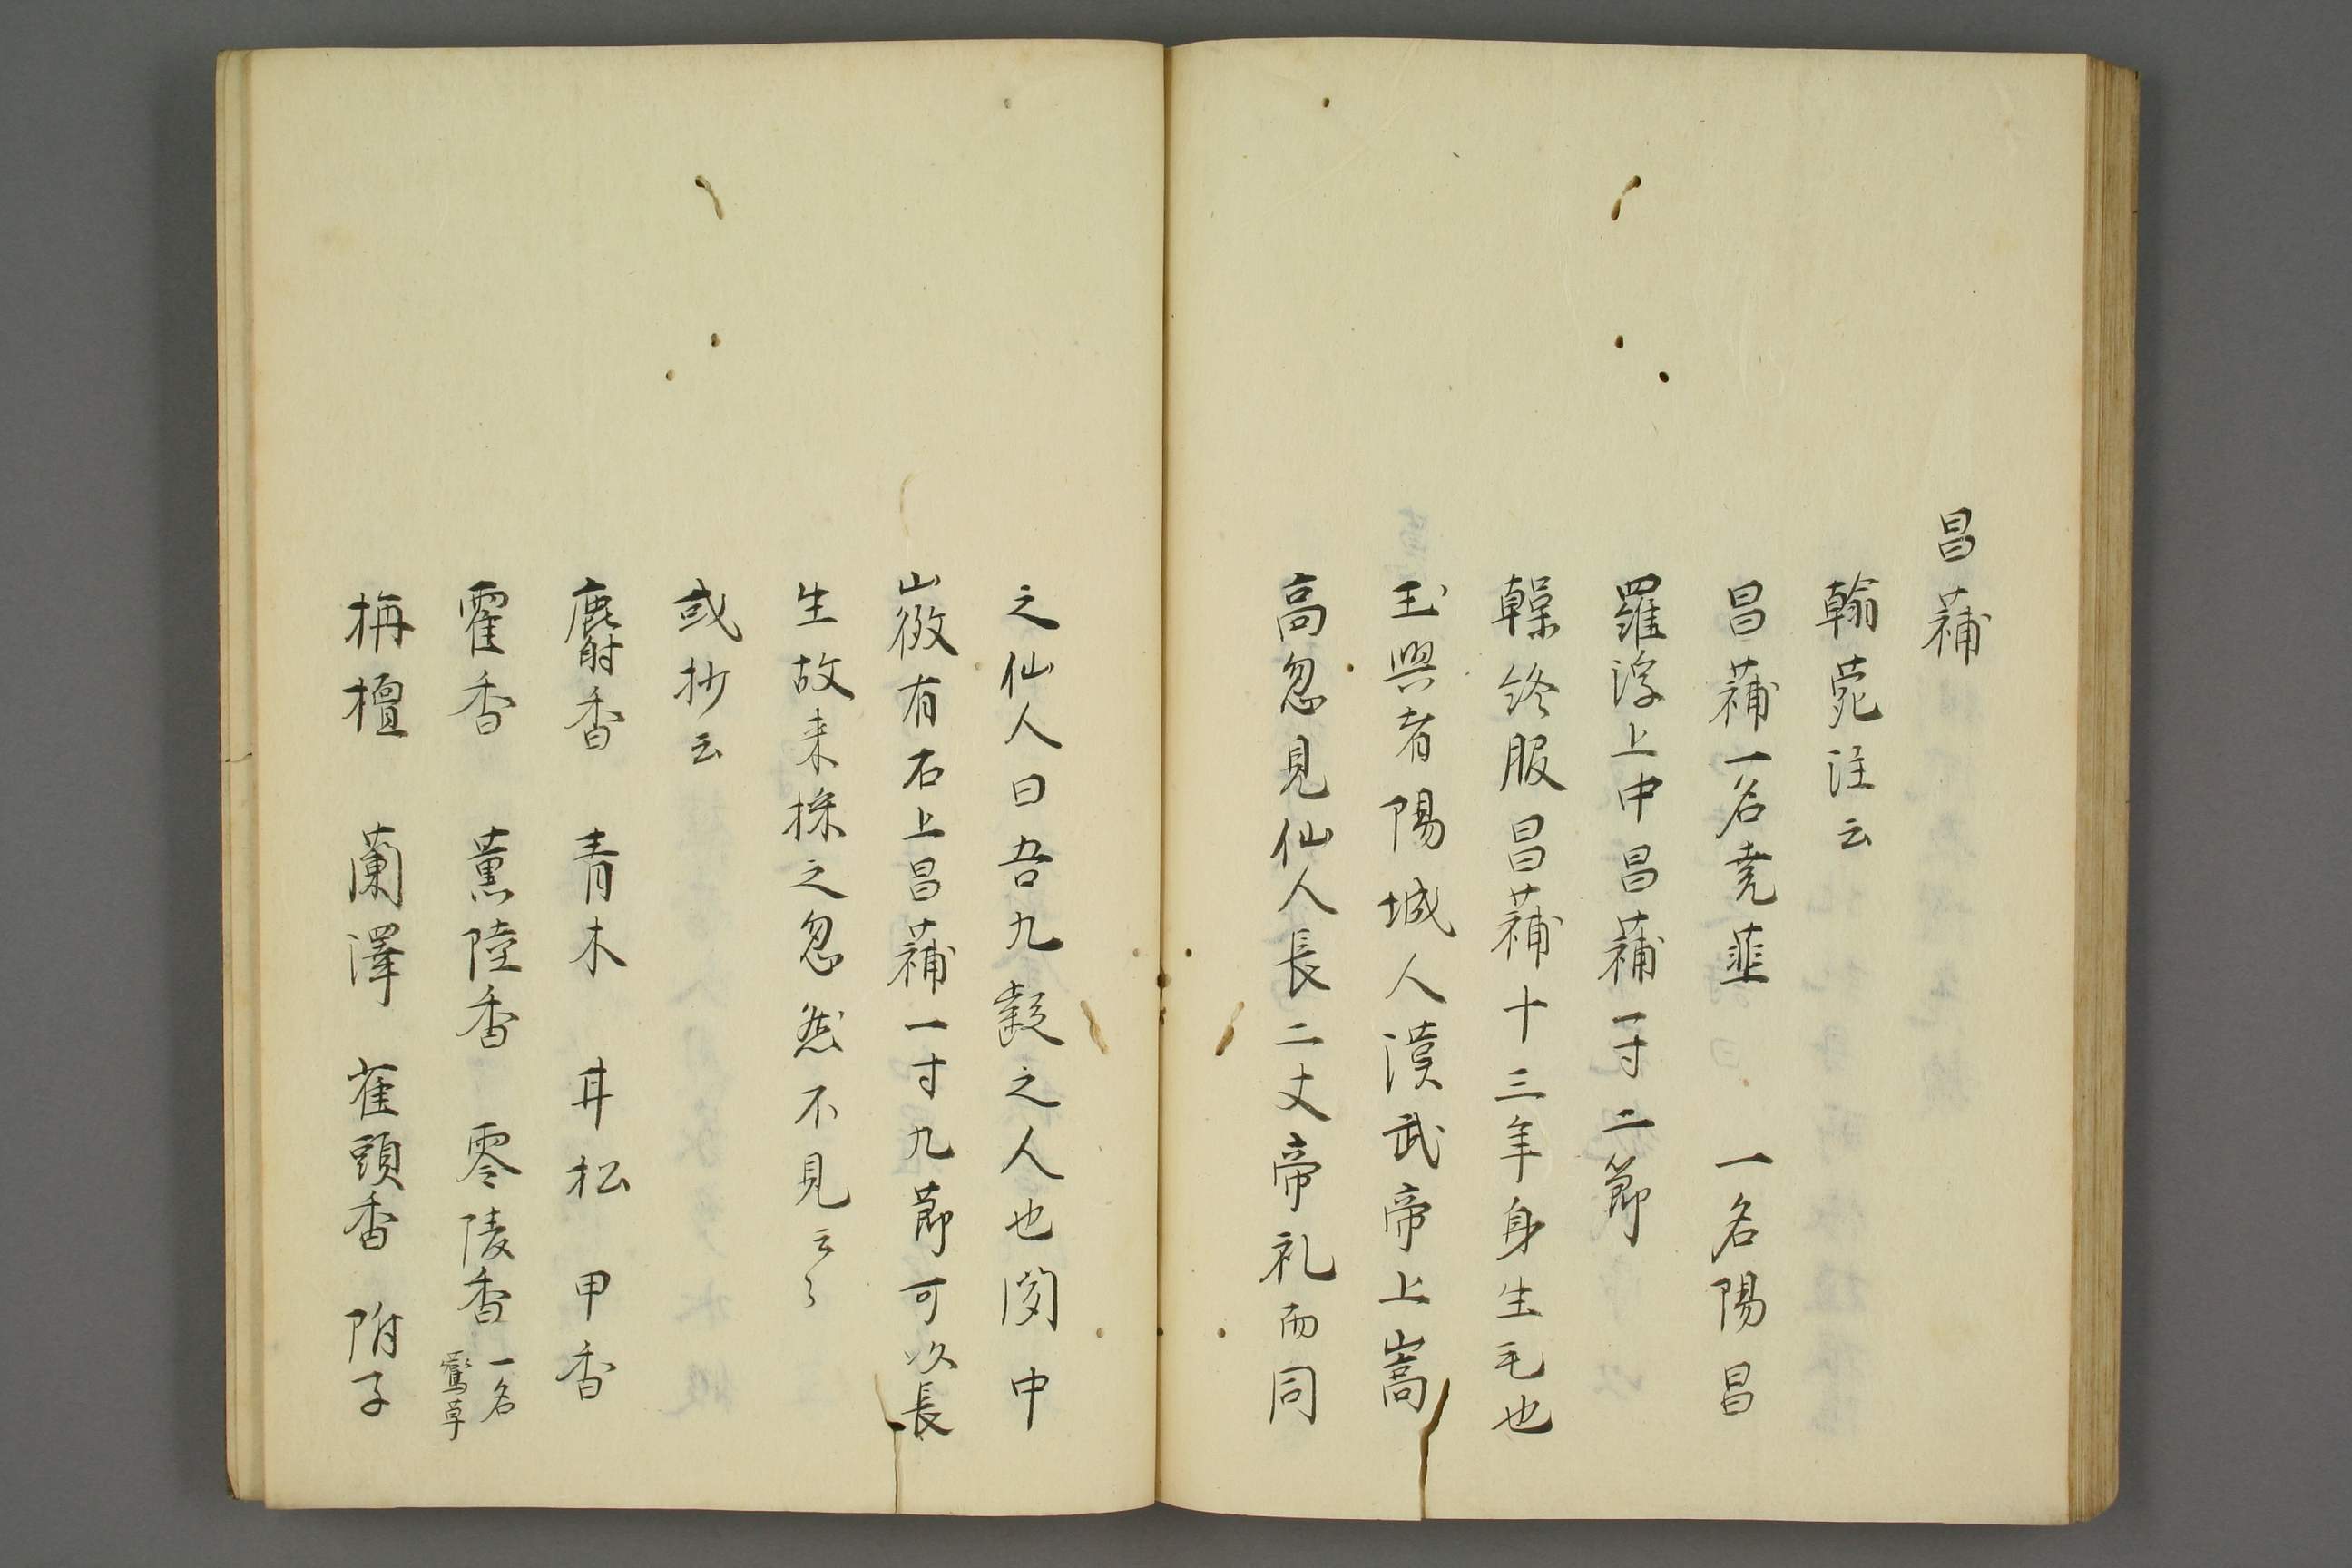 昌蒲
翰苑注云
昌蒲一名尭韮　一名陽昌
羅浮上中昌蒲一寸二節
韓終服昌蒲十三年身生毛也
王興者陽城人漢武帝上嵩
高忽見仙人長二丈帝礼而同
之仙人曰吾九疑之人也闵中
山嶶有石上昌蒲一寸九莭可以長
生故来採之忽然不見云々
或抄云
麝香　青木　甘松　甲香
霍香　薫陸香　零陵香 一名鷰草
栴檀　蘭澤　雀頭香　附子